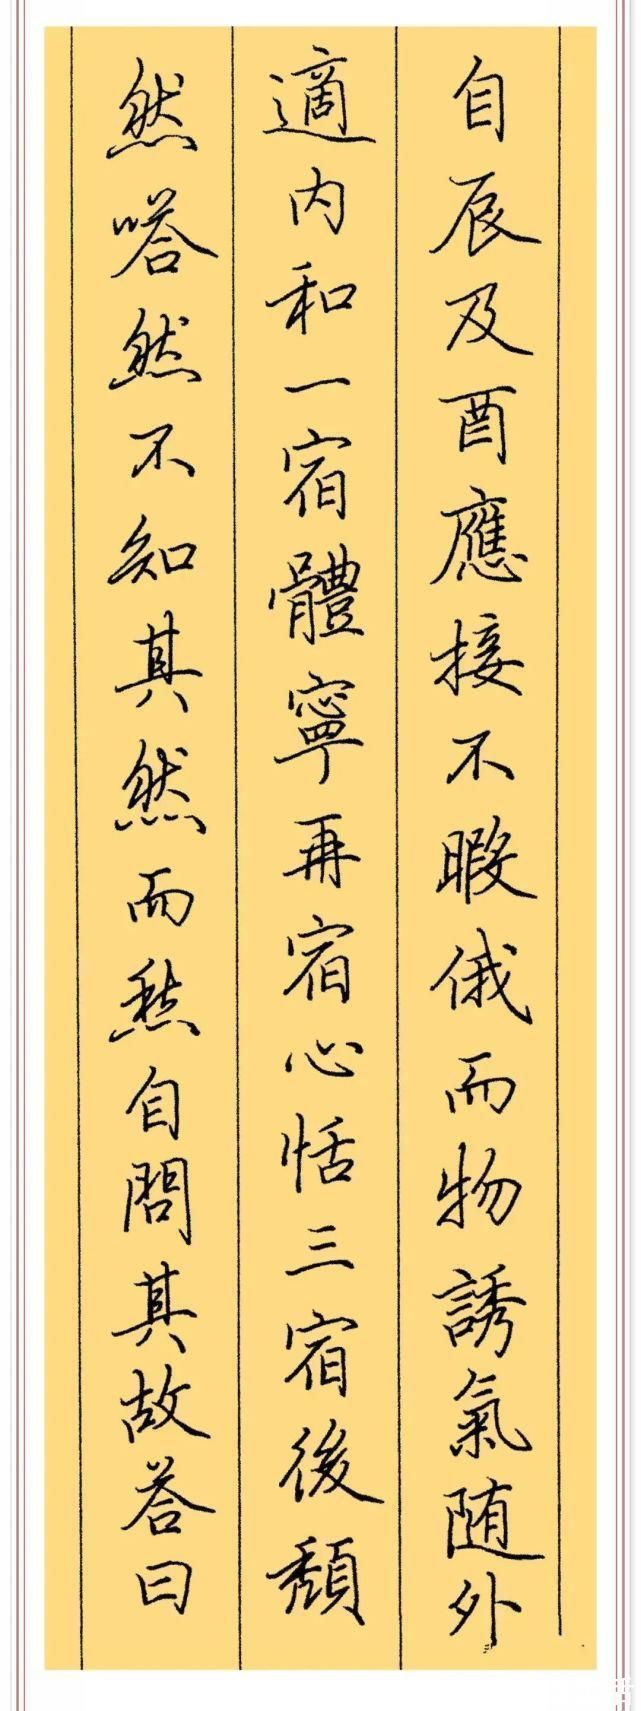 自辰及酉應接不暇俄而物誘氣随外
適内和一宿體寧再宿心恬三宿後頽
然嗒然不知其然而然自問其故荅曰